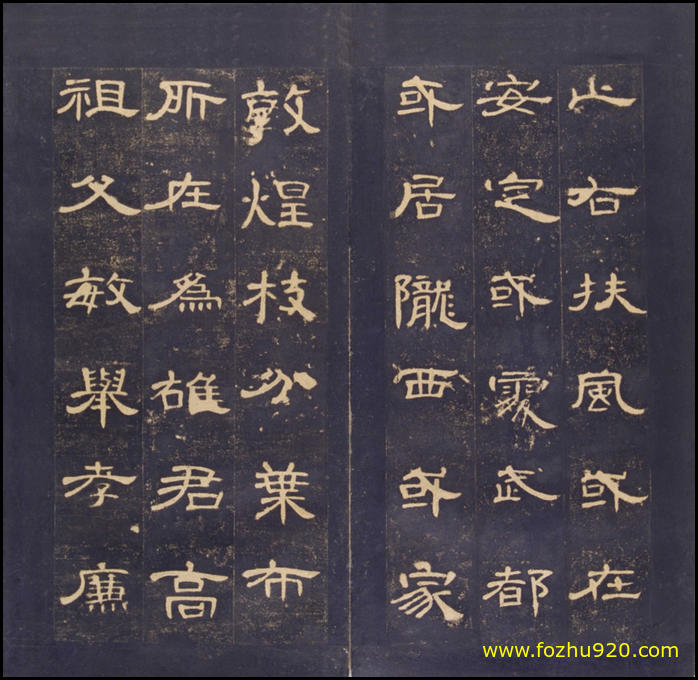 止右扶風或在
安定或處武都
或居隴西或家
敦煌枝分葉布
所在為雄君高
祖父敏舉孝廉
www.fozhu920.com